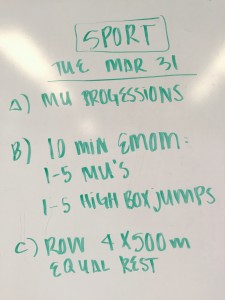 SPORT
TUE MAR 31
A) MU PROGESSIONS
B) 10 MIN EMOM:
1-5 MU'S
1-5 HIGH BOX JUMPS
C) ROW 4 X 500m
EQUAL REST